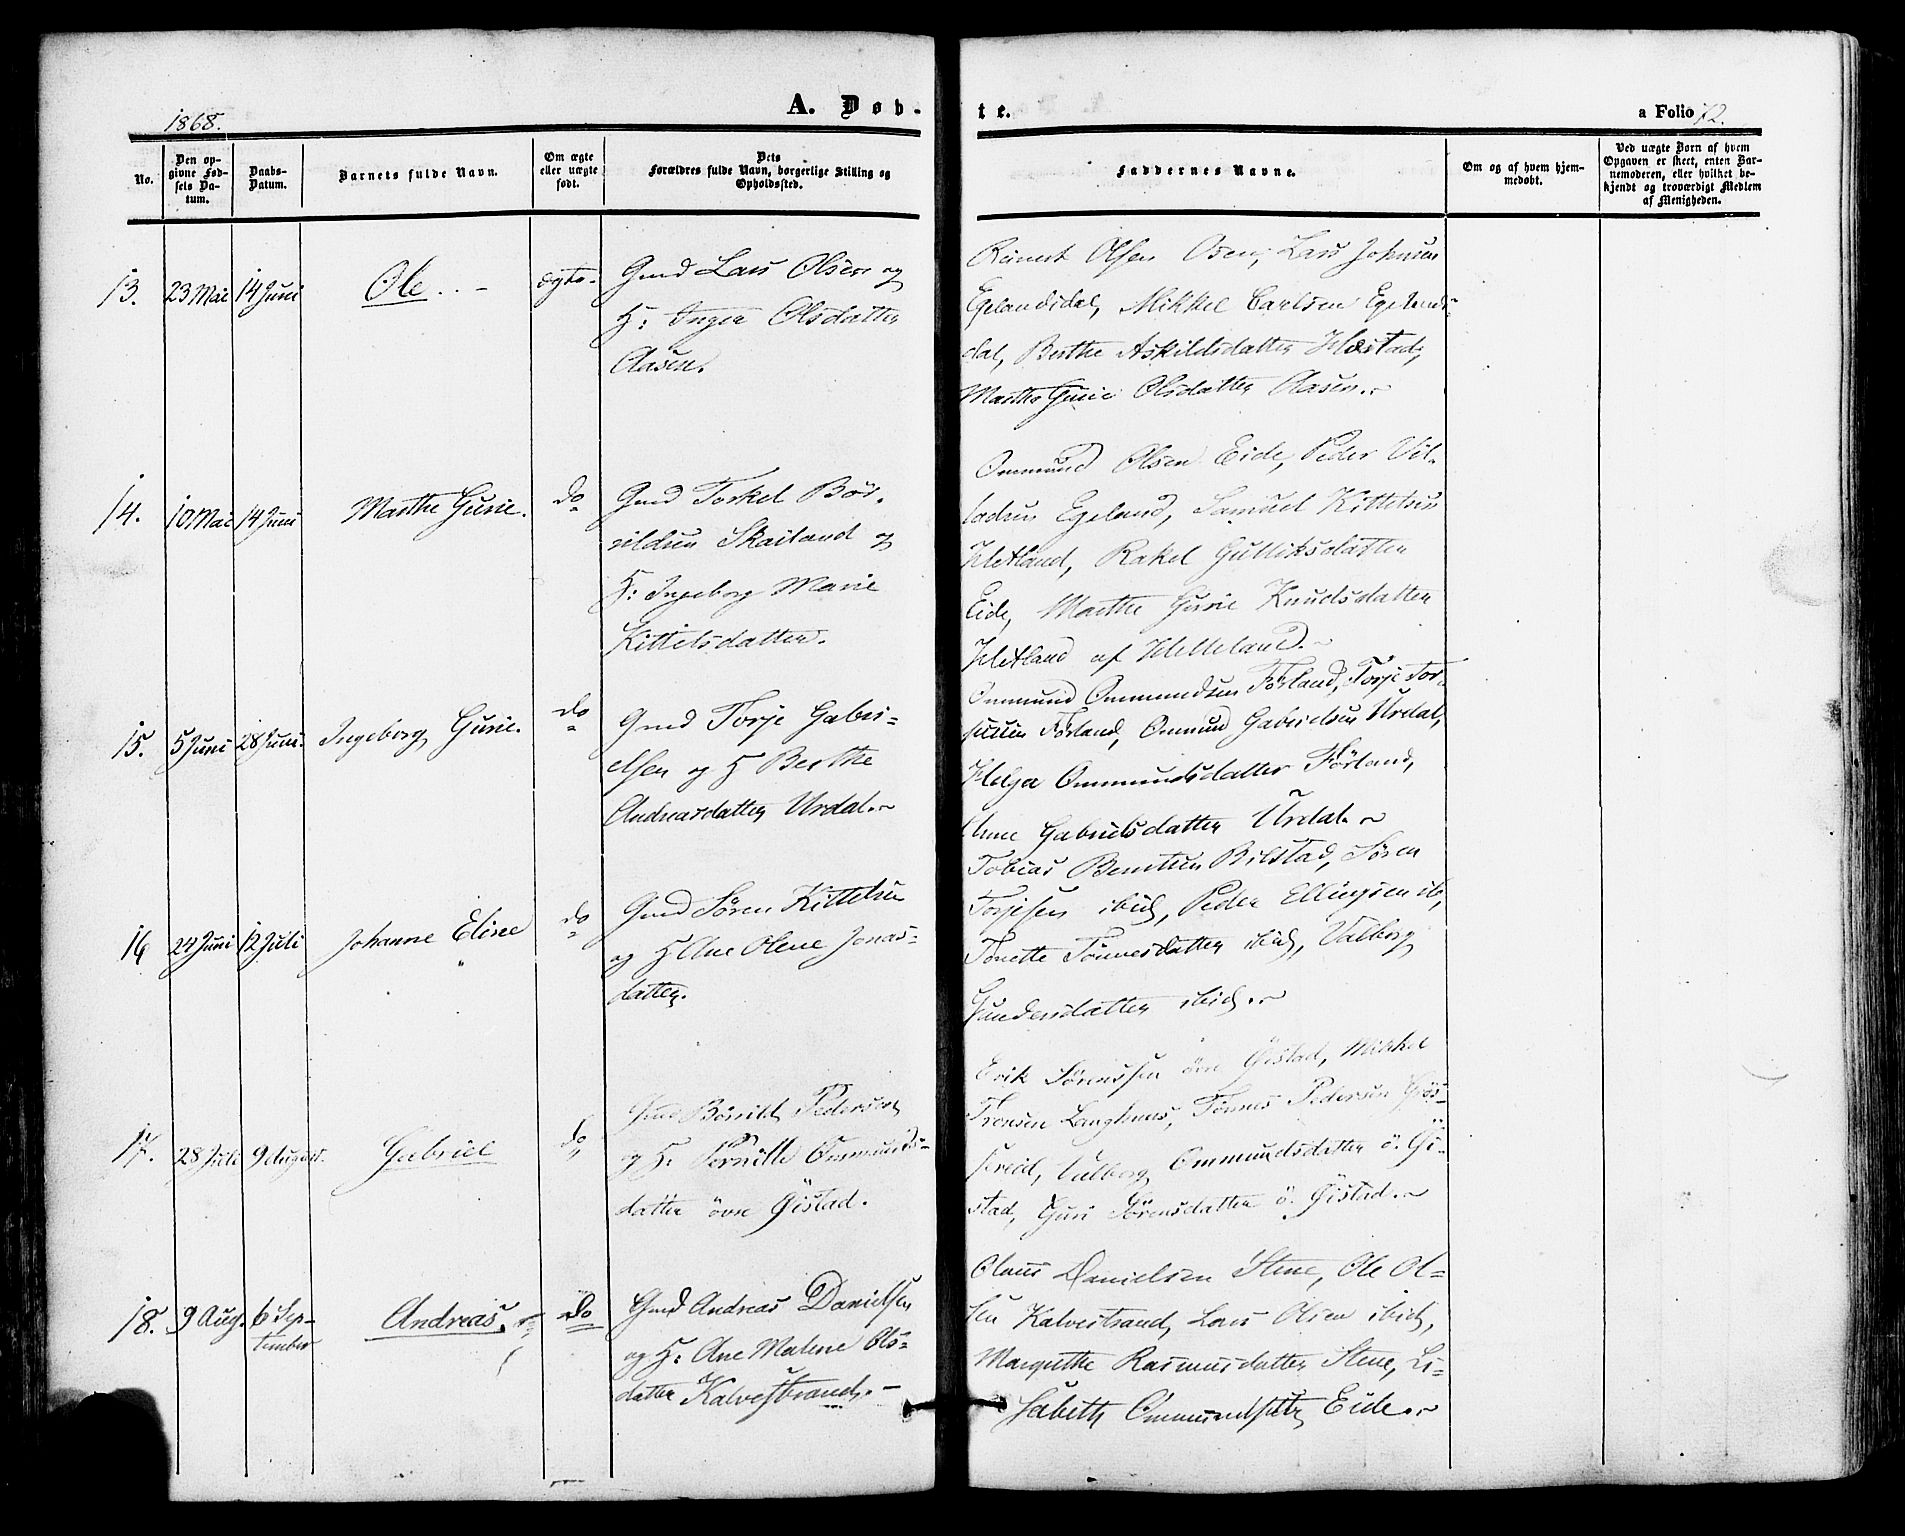 1868.
A. Døb-
te.
a Folio 72.
No.
Den op-
givne Fød-
sels Da-
tum.
Daabs-
Datum.
Barnets fulde Navn.
Om ægte
eller uægte
født.
Dets
Forældres fulde Navn, borgerlige Stilling og
Opholdssted.
Faddernes Navne.
Om og af hvem hjem-
medøbt.
Ved uægte Børn af hvem
Opgaven er skeet, enten Bar-
nemoderen, eller hvilket be-
kjendt og troværdigt Medlem
af Menigheden.
13.
23 Mai
14 Juni
Ole
ægte
Gmd Lars Olsen og
H: Inger Olsdatter
Aasen.
Reinert Olsen Osen, Lars Johnsen
Egelandsdal, Mikkel Carlsen Egelands-
dal, Berthe Askildsdatter
Marthe Gurie Olsdatter Aasen.
14.
10 Mai
14 Juni
Marthe Gurie.
do
Gmd Torkel Bør-
rildsen Skailand og
H: Ingeborg Marie
Kittelsdatter.
Ommund Olsen Eide, Peder Vil-
ladsen Egeland, Samuel Kittelsen
Hetland, Rakel Gulliksdatter
Eide, Marthe Gurie Knudsdatter
Hetland af Helleland.
15.
5 Juni
28 Juni.
Ingeborg Gurie.
do
Gmd Torje Gabri-
elsen og H Berthe
Andreasdatter Urdal.
Ommund Ommundsen Førland, Torje Tor-
Førland, Ommund Gabrielsen Urdal,
Helga Ommundsdatter Førland,
Anne Gabrielsdatter Urdal.
16
24 Juni
12 Juli
Johanne Elise
do
Gmd Søren Kittelsen
og H Ane Olene Jonas-
datter.
Tobias Berntsen Bilstad, Søren
Torjesen ibid, Peder Ellingsen ib,
Tonette Tønnesdatter ibid, Valborg
Gundersdatter ibid.
17.
28 Juli
9 August.
Gabriel
do
Gmd Børrild Pedersen
og H: Pernille Ommunds-
datter övre Gistad.
Erik Sørenssen övre Gistad, Mikkel
Tronsen Langhuus, Tønnes Pedersen Grøs-
Valborg Ommundsdatter ö. Gi-
stad, Guri Sørensdatter ö. Gistad.
18.
9 Aug.
6 Sep-
tember
Andreas.
do
Gmd Andreas Danielsen
og H: Ane Malene Ols-
datter Kalvestrand.
Olaus Danielsen Stene, Ole Ol-
sen Kalvestrand, Lars Olsen ibid,
Margrethe Rasmusdatter Stene, Li-
sabeth Eide.